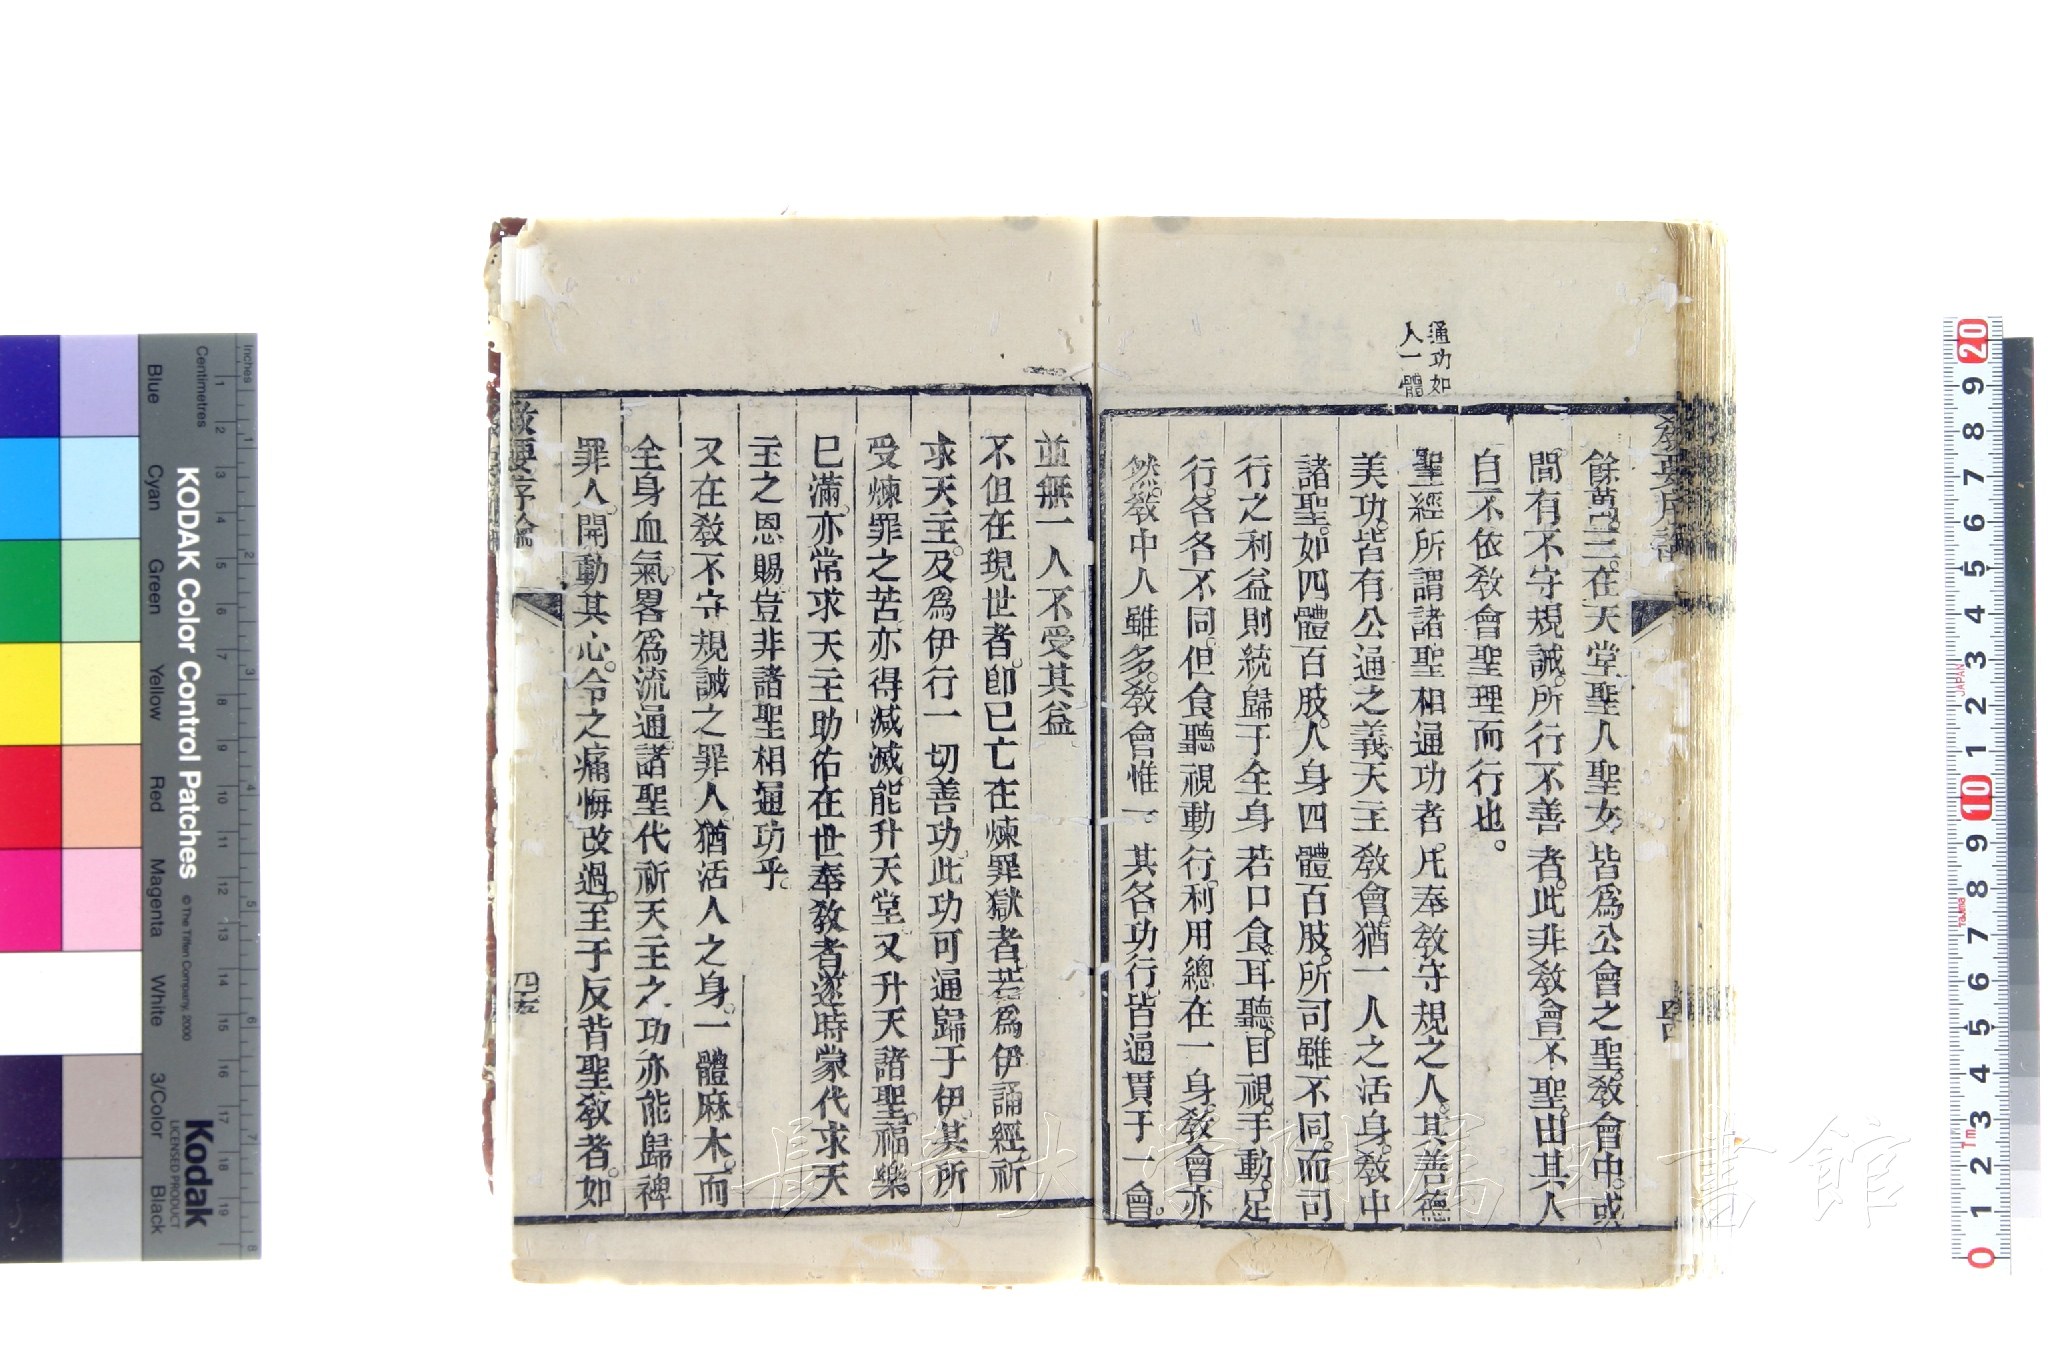 教要序論
四十四
通功如
人一體
餘萬。三。在天堂聖人聖女。皆爲公會之聖。教會中。或
間有不守規誡。所行不善者。此非教會不聖。由其人
自不依教會聖理而行也。
聖經所謂諸聖相通功者。凡奉教守規之人。其善德
美功。皆有公通之義。天主教會。猶一人之活身。教中
諸聖。如四體百肢。人身四體百肢。所司雖不同。而司
行之利益則統歸于全身。若口食。耳聽。目視。手動。足
行。各各不同。但食聽視動行。利用總在一身。教會亦
然。教中人雖多。教會惟一。其各功行。皆通貫于一會。
並無一人不受其益
不但在現世者。卽已亡在煉罪獄者。若爲伊誦經。祈
求天主。及爲伊行一切善功。此功可通歸于伊。其所
受煉罪之苦。亦得減滅。能升天堂。又升天諸聖。福樂
已滿。亦常求天主助佑在世奉教者。遂時蒙代求天
主之恩賜。豈非諸聖相通功乎。
又在教不守規誡之罪人。猶活人之身。一體麻木。而
全身血氣。畧爲流通。諸聖代祈天主之功。亦能歸裨
罪人。開動其心。令之痛悔改過。至于反背聖教者。如
教要序論
四十五
長崎大学附属図書館
KODAK Color Control Patches
© The Tiffen Company, 2000
Kodak
LICENSED PRODUCT
Inches
Centimetres
Blue
Cyan
Green
Yellow
Red
Magenta
White
3/Color
Black